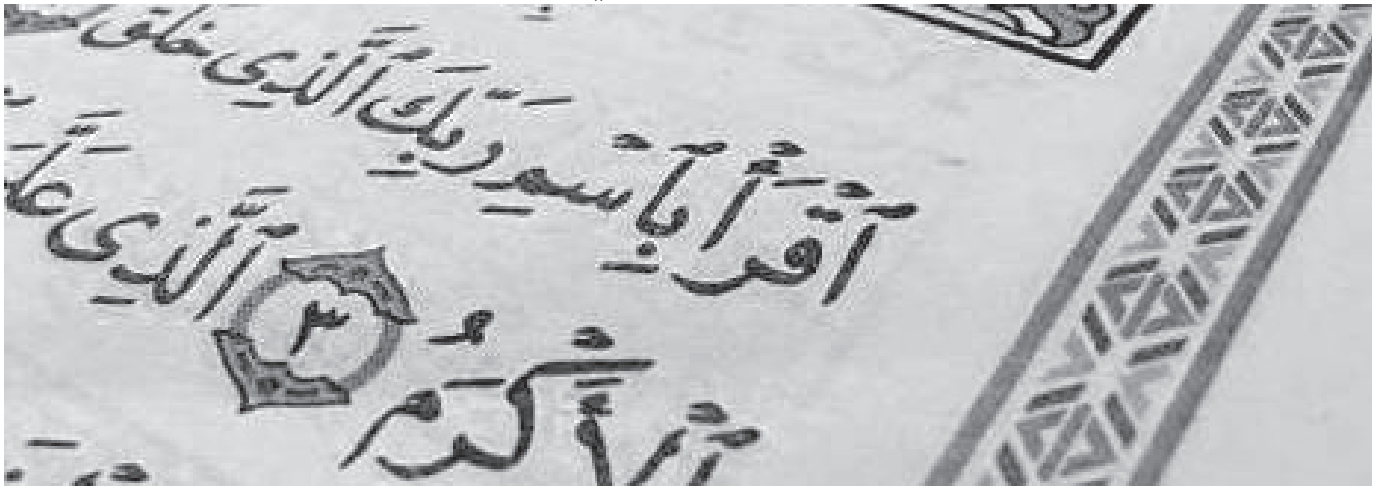 ٱقْرَأْ بِٱسْمِ رَبِّكَ ٱلَّذِى خَلَقَ
ٱلْأَكْرَمُ ٣ ٱلَّذِى عَلَّمَ